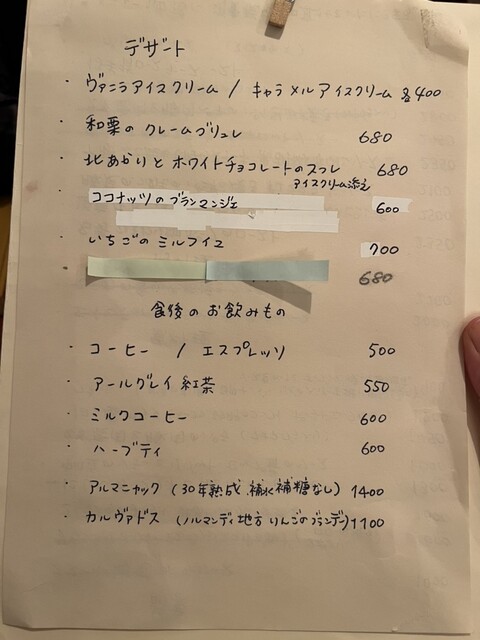 デザート
・ヴァニラアイスクリーム / キャラメルアイスクリーム 各400
・和栗のクレームブリュレ 680
・北あかりとホワイトチョコレートのスフレ 680
アイスクリーム添え
・ココナッツのブランマンジェ 600
・いちごのミルフイユ 700
・ 680
食後のお飲みもの
・コーヒー / エスプレッソ 500
・アールグレイ紅茶 550
・ミルクコーヒー 600
・ハーブティ 600
・アルマニャック (30年熟成.補水補糖なし) 1400
・カルヴァドス (ノルマンディ地方りんごのブランデー) 1100